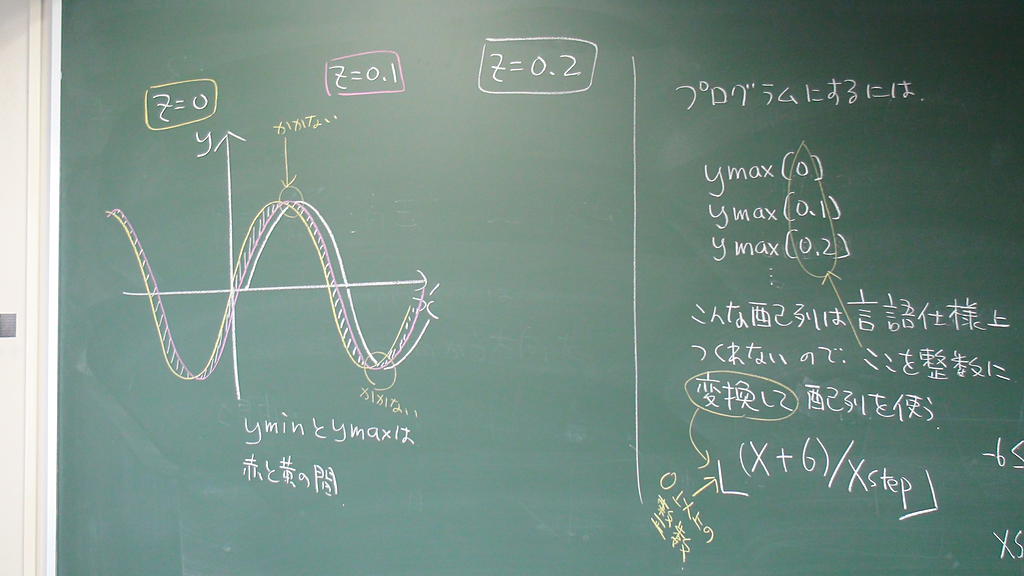 z=0
z=0.1
z=0.2
y
かかない
x
かかない
yminとymaxは
赤と黄の間
プログラムにするには.
ymax(0)
ymax(0.1)
ymax(0.2)
⋮
こんな配列は言語仕様上
つくれないので、ここを整数に
変換して配列を使う
⌊(x+6)/xstep⌋
-6≤
xs